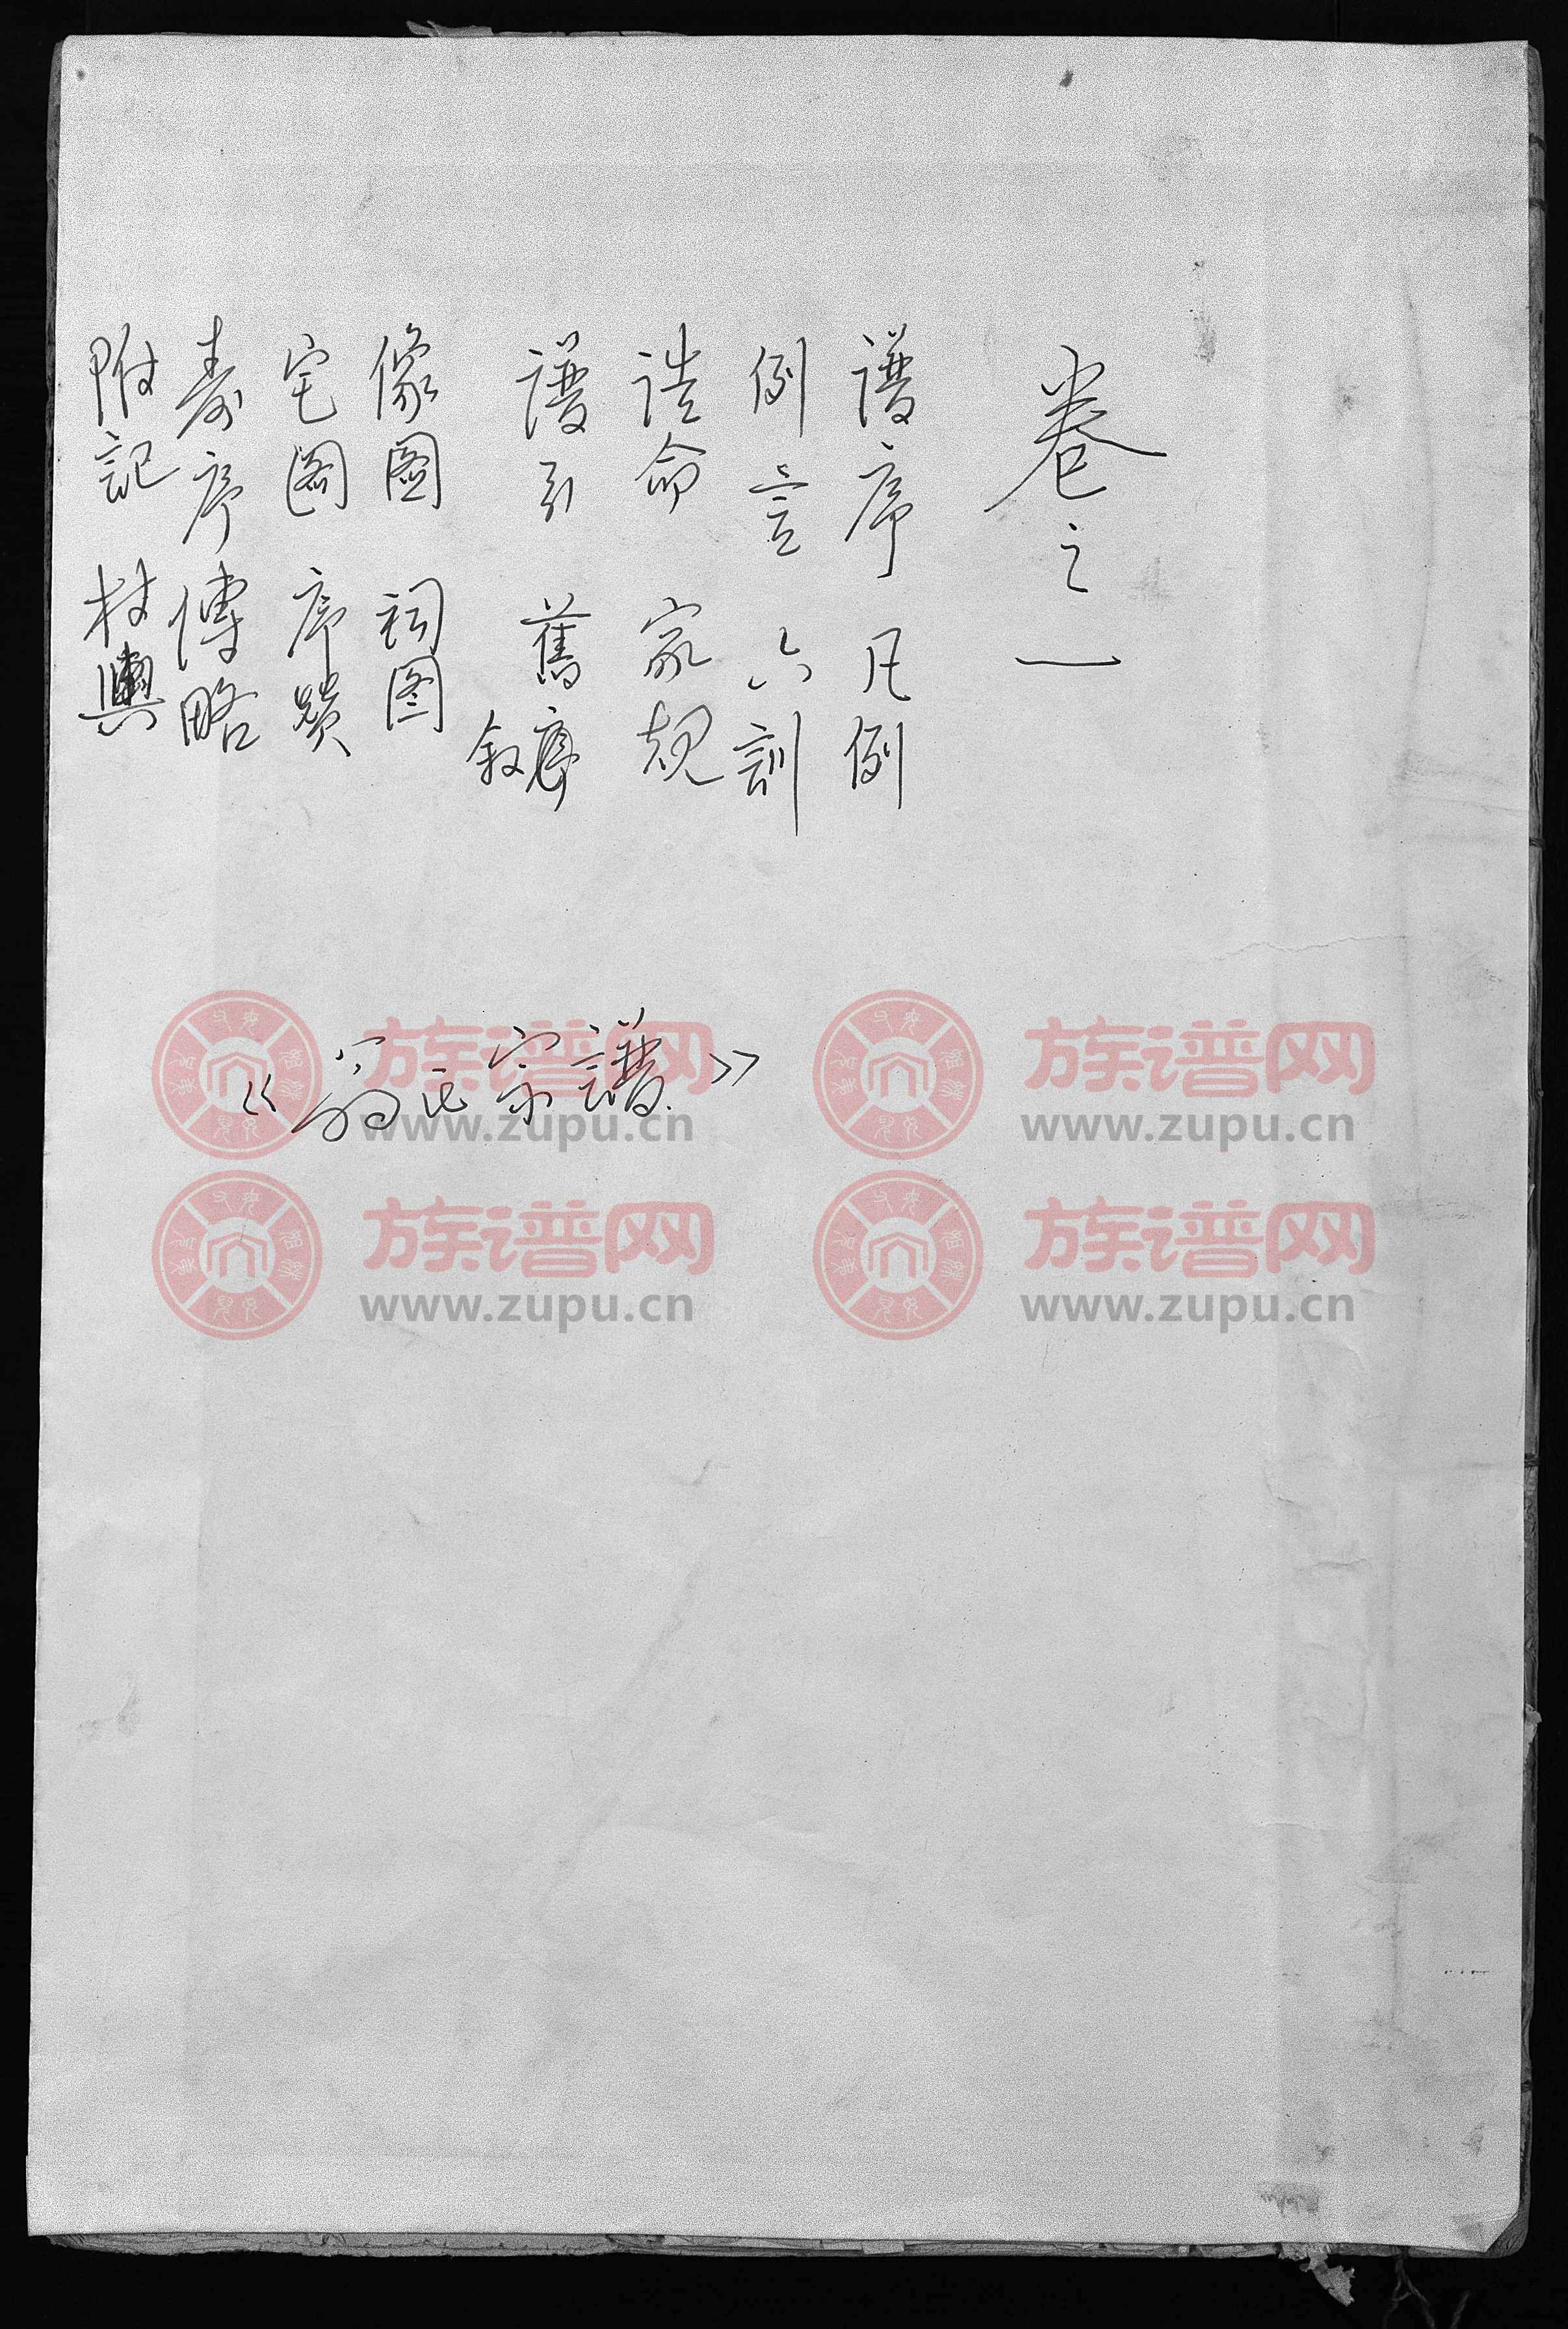 卷之一
譜序 凡例
例言 六訓
誥命 家規
譜引 舊序
叙
像圖 祠图
宅图 序贊
寿序 傳略
附記 杖輿
《翁氏宗譜》
族谱网
www.zupu.cn
族谱网
www.zupu.cn
族谱网
www.zupu.cn
族谱网
www.zupu.cn